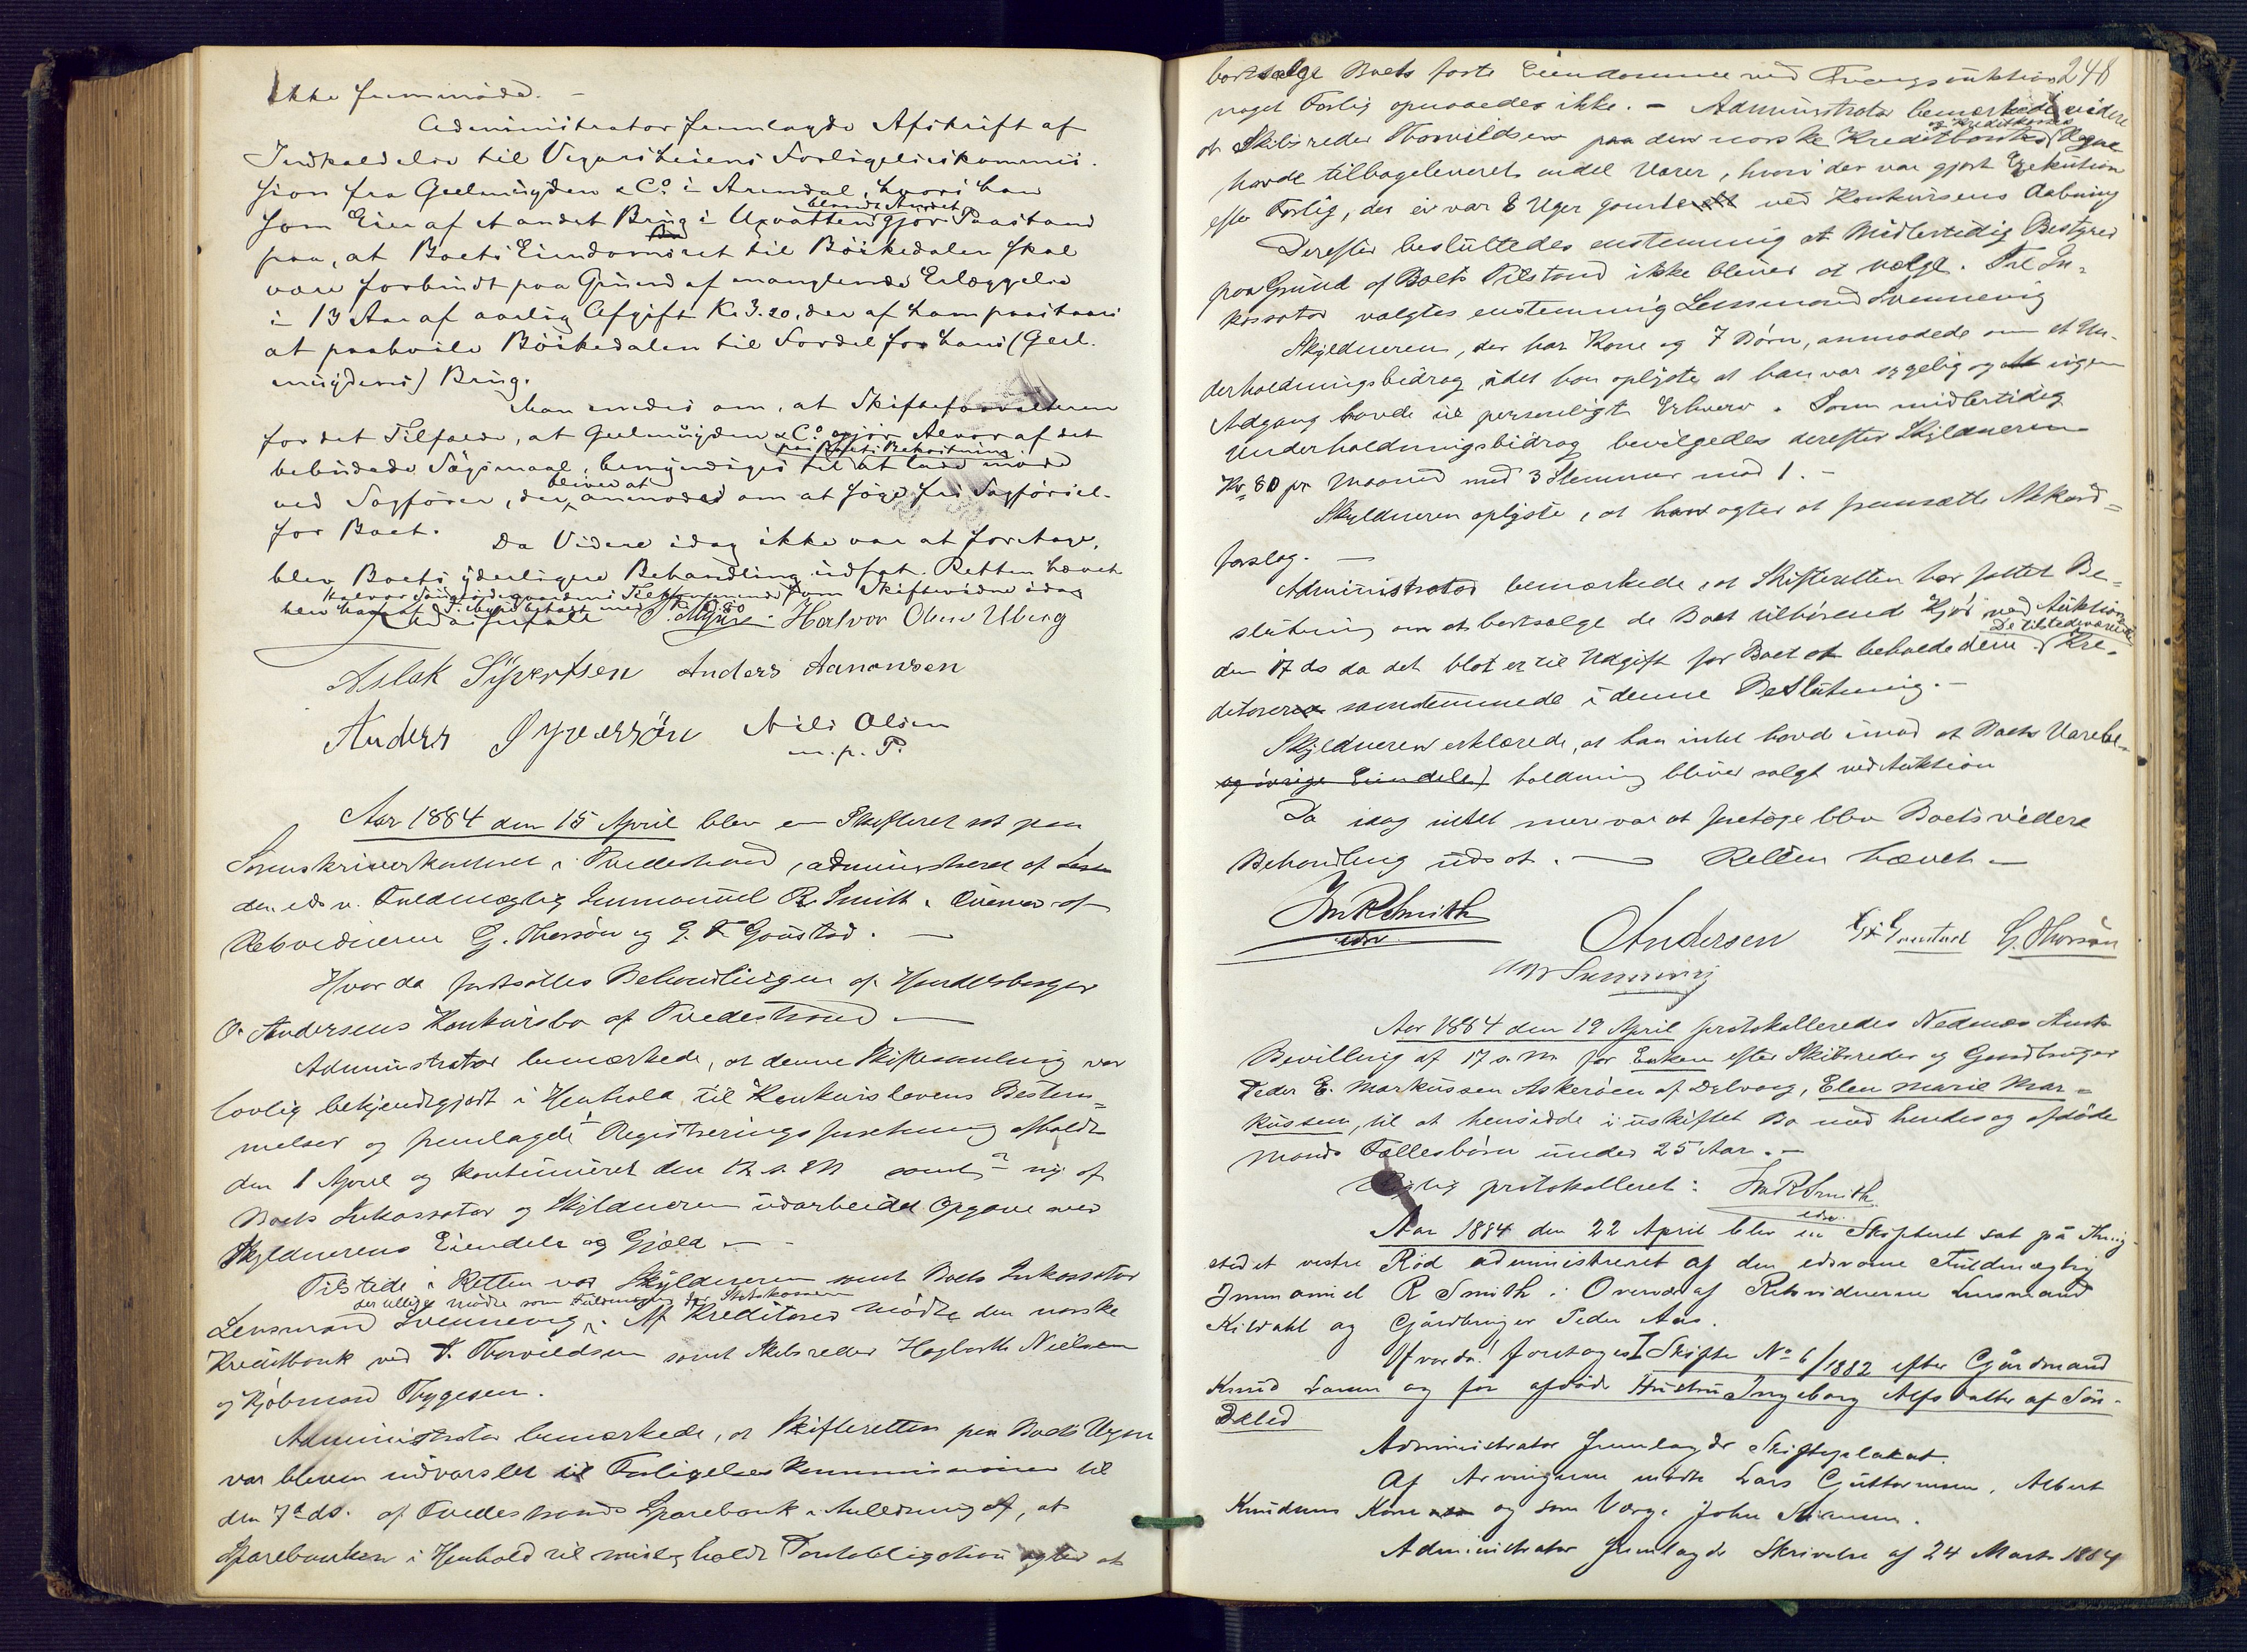 Ikke fremmødt. –
Administrator fremlagde Afskrift af
Indkaldelse til Vegarsheiens Forligelseskommis-
sion fra Geelmuyden & Co. i Arendal, hvori han
blandt Andet
som Eier af et andet Brug i Uxvatten gjør Paastand
paa, at Boets Eiendomsret til Böikedalen skal
være forbrudt paa Grund af manglende Erlæggelse
i 13 Aar af aarlig Afgift Kr. 3.20, der af ham paastaaes
at paahvile Böikedalen til Fordel for hans (Geel-
muydens) Brug.
Man enedes om, at Skifteforvalteren
for det Tilfælde, at Geelmuyden & Co. gjør Alvor af det
paa Boets Bekostning
bebudede Søgsmaal, bemyndiges til at lade møde
bliver at
ved Sagfører, der anmodes om at søge fri Sagførsel
for Boet.
Da Videre idag ikke var at foretage,
blev Boets yderligere Behandling udsat. Retten hævet
som Skiftevidne idag
Halvor Olsen Uberg
Aslak Sÿvertsen Anders Aanonsen
Anders Syversön Nils Olsen
m. p. P.
Aar 1884 den 15 April blev en Skifteret sat paa
Sorenskriverkontoret i Tvedestrand, administreret af
den eds v. Fuldmægtig Immanuel R. Smith i Overvær af
Retsvidnerne G. Thorsøn og G. F. Goustad. —
Hvor da fortsattes Behandlingen af Handelsborger
O. Andersens Konkursbo af Tvedestrand —
Administrator bemærkede, at denne Skiftesamling var
lovlig bekjendtgjort i Henhold til Konkurslovens Bestem-
melser og fremlagde Registreringsforretning afholdt
den 1 April og kontinueret den 12 s. M samt en ny af
Boets Inkassator og Skyldneren udarbeidet Opgave over
Skyldnerens Eiendele og Gjæld —
Tilstede i Retten var Skyldneren samt Boets Inkassator
der tillige mødte som Fuldmægtig for Statskassen
Lensmand Svennevig. Af Kreditorer mødte den norske
Kreditbank ved T. Thorvildsen samt Skibsreder Hagbarth Nielsen
og Kjøbmand Thygesen.
Administrator bemærkede, at Skifteretten paa Boets Vegne
var bleven udvarslet til Forligelseskommissionen til
den 7de ds. af Tvedestrands Sparebank i Anledning af, at
Sparebanken i Henhold til misligholdt Pantobligation agter at
248
bortsælge Boets faste Eiendomme ved Tvangsauktion
noget Forlig opnaaedes ikke. – Administrator bemærkede videre
og Kreditkasses
at Skibsreder Thorvildsen paa den norske Kreditbanks Vegne
havde tilbageleveret endel Varer, hvori der var gjort Exekution
efter Forlig, der ei var 8 Uger gammelt ved Konkursens Aabning
Derefter besluttedes enstemmig at Midlertidig Bestyrer
paa Grund af Boets Tilstand ikke bliver at vælge. Til In-
kassator valgtes enstemmig Lensmand Svennevig
Skyldneren, der har Kone og 7 Børn, anmodede om et Un-
derholdningsbidrag idet han oplyste at han var sygelig og ingen
Adgang havde til personligt Erhverv. Som midlertidig
Underholdningsbidrag bevilgedes derefter Skyldneren
Kr 80 pr Maaned med 3 Stemmer mod 1. –
Skyldneren oplyste, at han agter at fremsætte Akkord-
forslag. —
Administrator bemærkede, at Skifteretten har fattet Be-
slutning om at bortsælge de Boet tilhørende Kjør ved Auktion
De tilstedeværende
den 17 ds da det blot er til Udgift for Boet at beholde dem. Kre-
ditorer samstemmede i denne Beslutning. —
Skyldneren erklærede, at han intet havde imod at Boets Varebe-
og øvrige Eiendele) holdning bliver solgt ved Auktion
Da idag intet mere var at foretage blev Boets videre
Behandling udsat. — Retten hævet —
ImRSmith
edsv.
Andersen G F Goustad G. Thorsön
Svennevig
Aar 1884 den 19 April protokolleredes Nedenæs Amts
Bevilling af 17 s. M. for Enken efter Skibsreder og Gaardbruger
Peder E. Markussen Askerøen af Dybvaag, Elen Marie Mar-
kussen, til at hensidde i uskiftet Bo med hendes og afdøde
Mands Fællesbørn under 25 Aar. —
Rigtig protokolleret: ImRSmith
edsv.
Aar 1884 den 22 April blev en Skifteret sat på Thing-
stedet vestre Röd administreret af den edsvorne Fuldmægtig
Immanuel R Smith i Overvær af Retsvidnerne Lensmand
Kildahl og Gårdbruger Peder Aas.
Hvorda! foretoges I Skifte No 6/1882 efter Gårdmand
Knud Larsen og før afdöde Hustru Ingeborg Alfsdatter af Sön-
deled
Administrator fremlagde Skifteplakat.
Af Arvingerne mødte Lars Guttormsen, Albert
Knudsens Kone og som Verge John
Administrator fremlagde Skrivelse af 24 Marts 1884